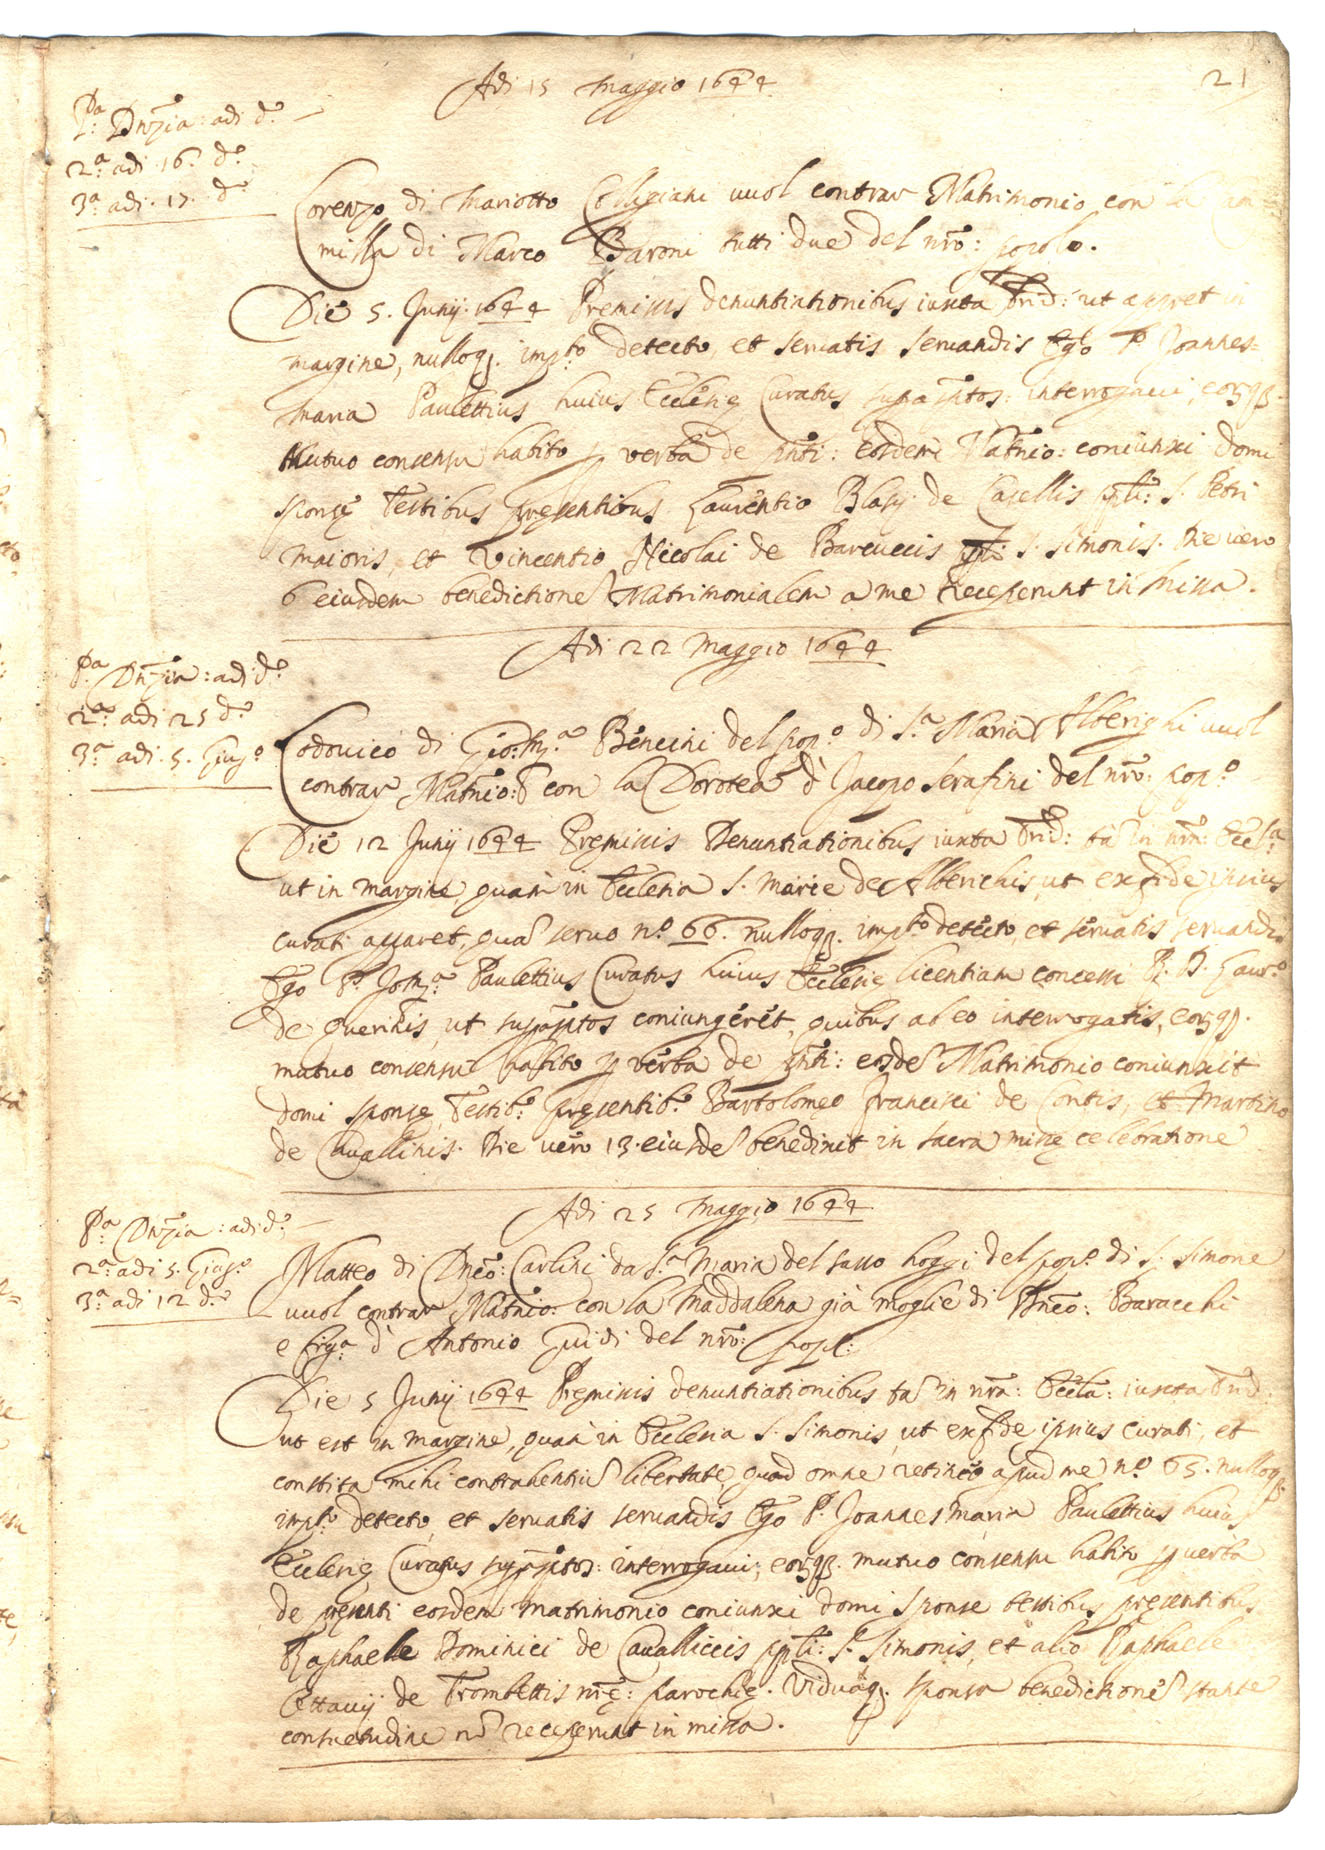 21
Adi 15 Maggio 1644
P.a Dn͠zia: adi d.o
2.a adi 16. d.o
3.a adi 17. d.o
Lorenzo di Mariotto Colligiani vuol contrar Matrimonio con la Cam=
milla di Marco Baroni tutti due del nr̃o: popolo.
Die 5. Junij 1644 Premissis denuntiationibus iuxta Trid: ut apparet in
margine, nulloq. imp.to detecto, et servatis servandis Ego P. Joannes=
maria Paulettius huius Ecclesię Curatus supũptos: interrogaui, eorq.
mutuo consensu habito p verba de pñti: eosdem Matrio: coniunxi domi
sponsę testibus presentibus Laurentio Blasij de Casellis ppli: S. Petri
maioris, et Vincentio Nicolai de Barcuccis ppli: S. Simonis. Die vero
6 eiusdem benedictione Matrimonialem a me receperunt in Missa.
Adi 22 Maggio 1644
P.a Dn͠zia: adi d.o
2.a adi 25 d.o
3.a adi 5. Giug.o
Lodovico di Gio:M.a Bencini del pop.o di S.a Maria Alberighi vuol
contrar Matrio: con la Dorotea d' Jacopo Serafini del nr̃o: pop.o
Die 12 Junij 1644 Premissis Denuntiationibus iuxta Trid: tã in nr̃a: Eccl.a
ut in margine, quam in Ecclesia S. Marie de Alberichis, ut ex fide ipsius
curati apparet, quã servo n.o 66. nulloq. imp.to detecto, et servatis servandis
Ego P. Jo:M.a Paulettius Curatus huius Ecclesię licentiam concessi R. D. Laur.o
de Guerinis, ut supũptos coniungeret, quibus ab eo interrogatis, eorq.
mutuo consensu habito p verba de pñti: eosdẽ Matrimonio coniunxit
domi sponsę testib.s presentib.s Bartolomeo Francisci de Contis, et Martino
de Cavallinis. Die vero 13. eiusdẽ benedixit in sacra missę celebratione
Adi 25 Maggio 1644
P.a Dn͠zia: adi d.o
2.a adi 5. Giug.o
3.a adi 12 d.o
Matteo di Dn͠co: Carlini da S.a Maria del sasso hoggi del pop.o di S. Simone
vuol contrar Matrio: con la Maddalena già moglie di Dn͠co: Baracchi
e fig.a d' Antonio Guidi del nr̃o: popl:
Die 5 Junij 1644 Premissis denuntiationibus tã in nr̃a: Eccla: iuxta Trid:
ut est in margine, quam in Ecclesia S. Simonis, ut ex fide ipsius curati, et
constita mihi contrahentiũ libertate, quod omne retineo apud me n.o 65. nulloq.
imp.to detecto, et servatis servandis Ego P. Joannesmaria Paulettius huius
Ecclesię Curatus supũptos: interrogaui, eorq. mutuo consensu habito p verba
de presenti eosdem matrimonio coniunxi domi sponse testibus presentibus
Raphaele Dominici de Cavalliccis ppli: S. Simonis, et alio Raphaele
Ottavij de Trombettis nr̃ę: parochię. Viduaq. sponsa benedictionẽ stante
consuetudine nõ receperunt in missa.